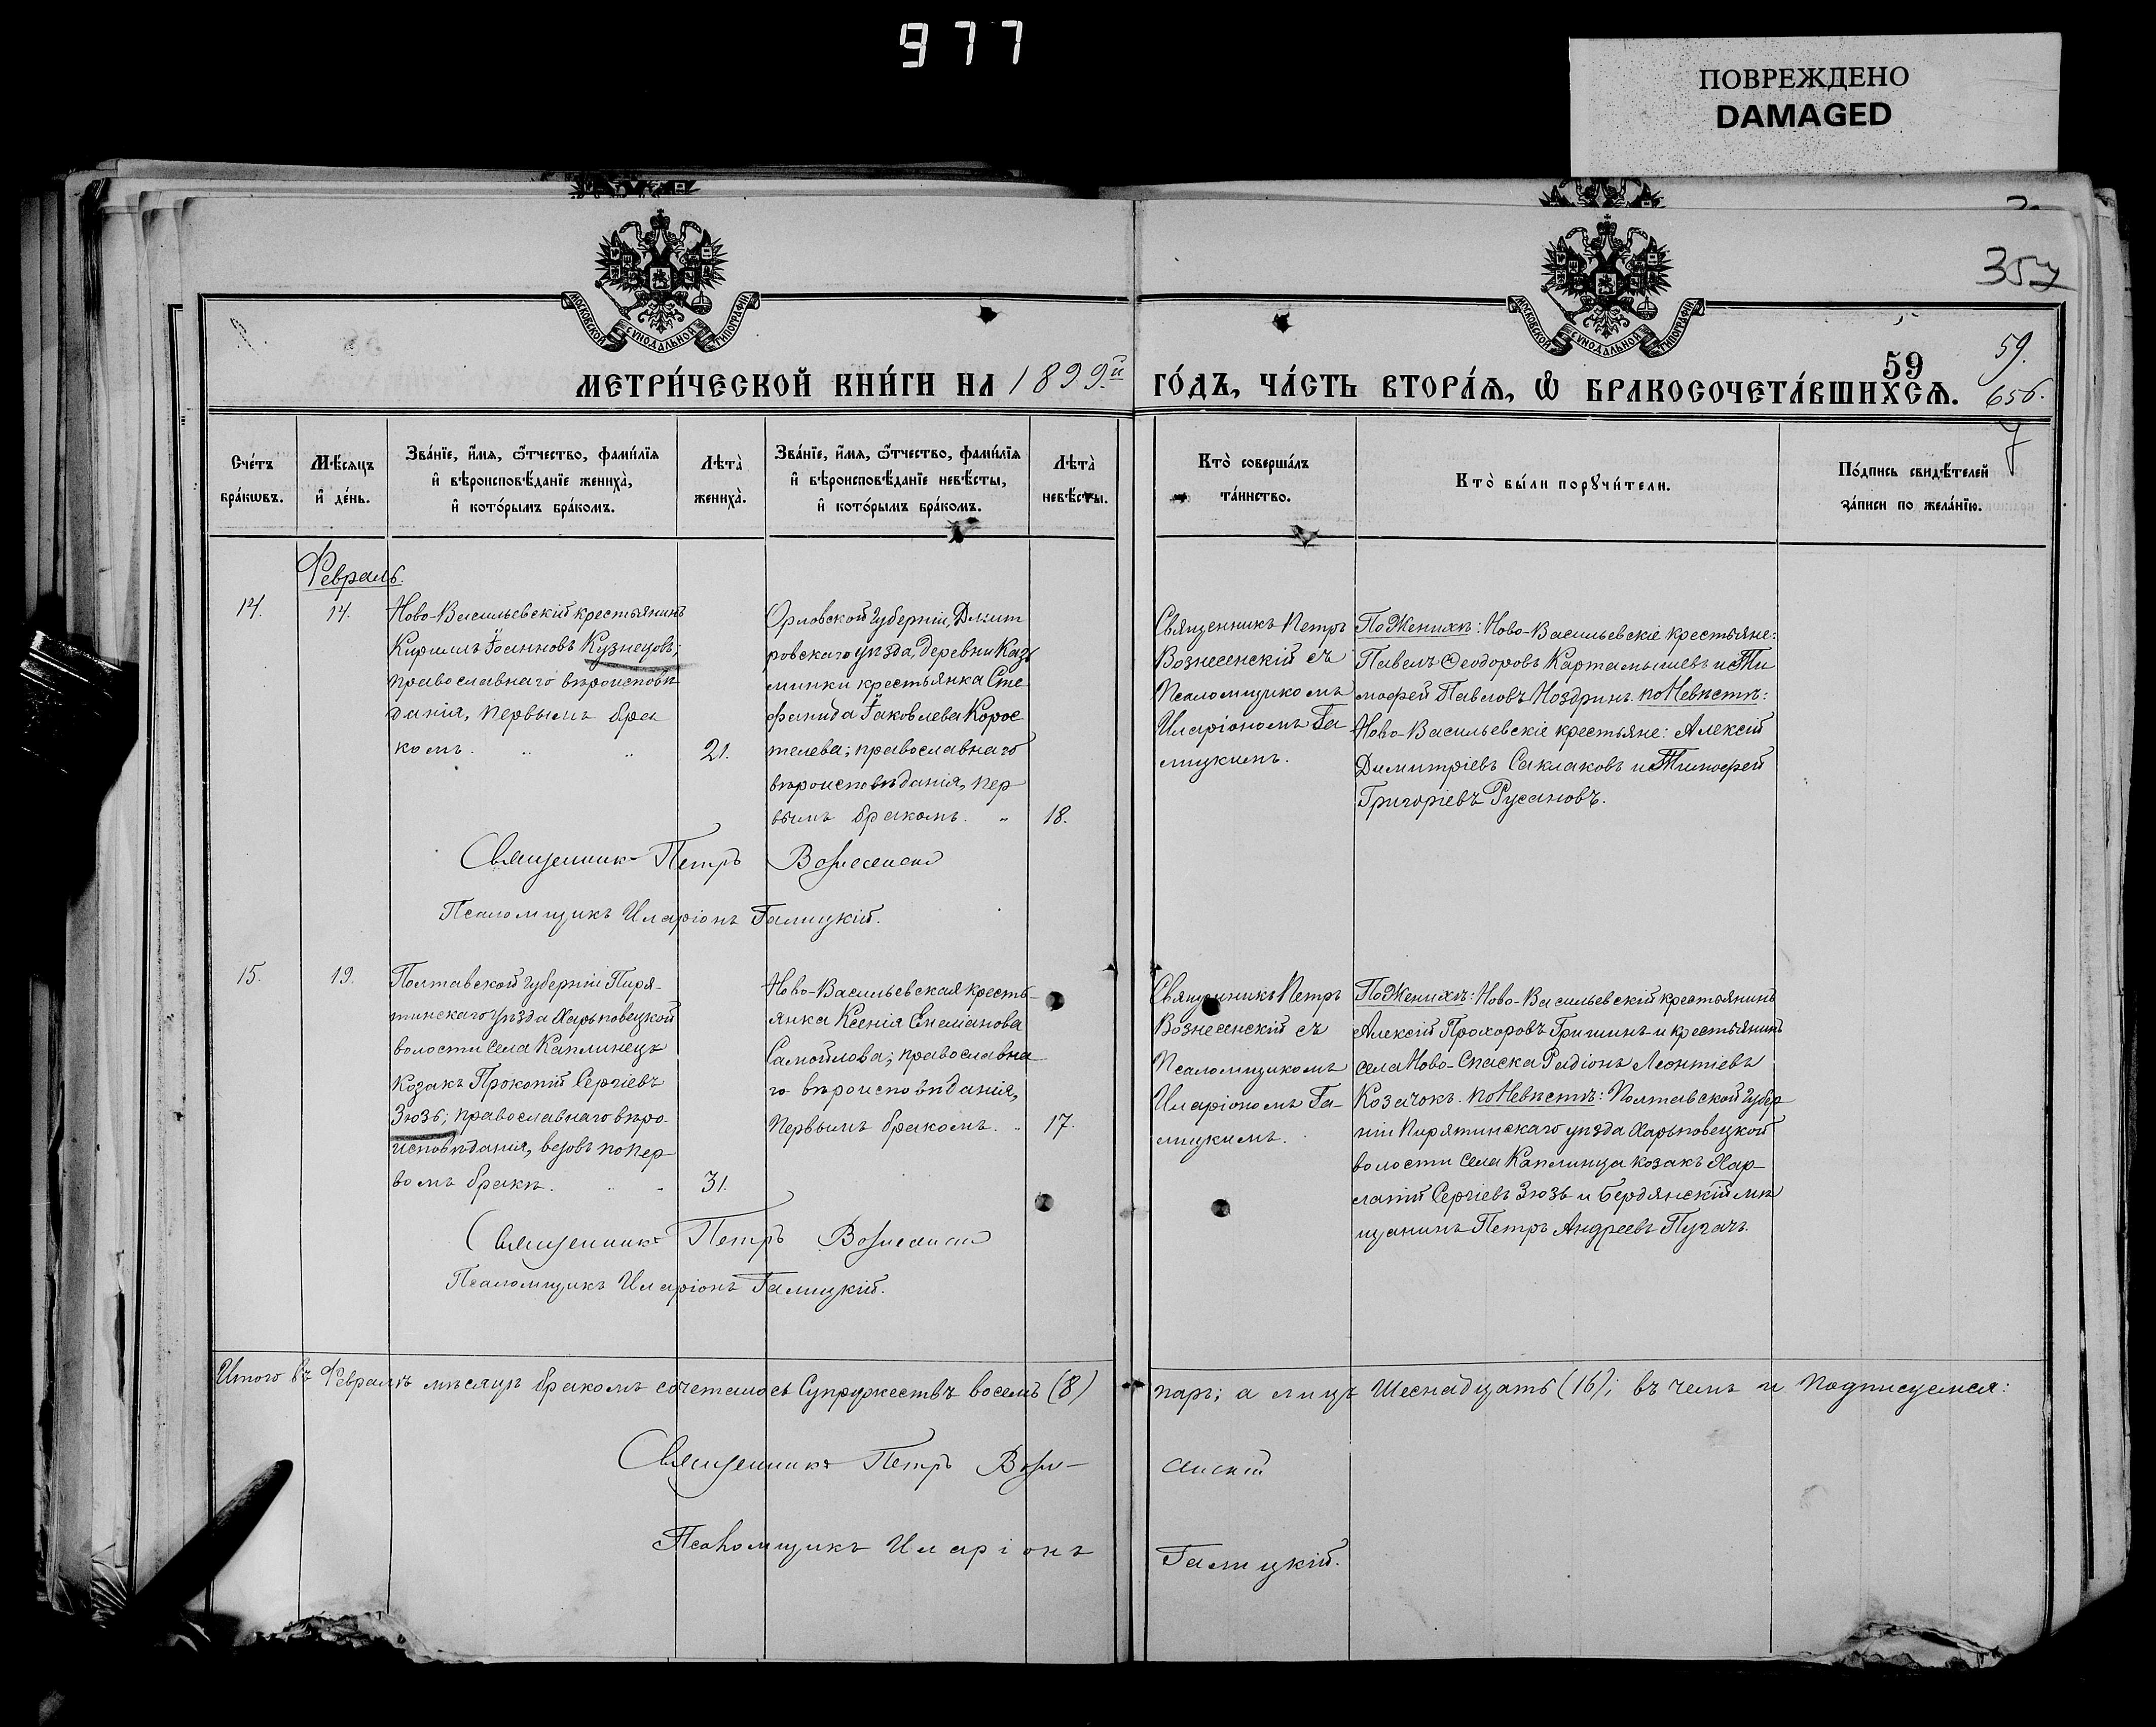 977
ПОВРЕЖДЕНО
DAMAGED
357
МОСКОВСКОЙ СѴНОДАЛЬНОЙ ТИПОГРАФІИ
МОСКОВСКОЙ СѴНОДАЛЬНОЙ ТИПОГРАФІИ
59
59.
656.
7
МЕТРИ́ЧЕСКОЙ КНИ́ГИ НА 1899й ГО́ДЪ, ЧА́СТЬ ВТОРА́Ѧ, Ѡ҆ БРАКОСОЧЕТА́ВШИХСѦ.
Сче́тъ
бра́кѡвъ.
Мѣ́сѧцъ
и҆ де́нь.
Зва́нїе, и҆́мѧ, ѻ҆́тчество, фами́лїѧ
и҆ вѣроисповѣ́данїе жениха̀,
и҆ кото́рымъ бра́комъ.
Лѣта̀
жениха̀.
Зва́нїе, и҆́мѧ, ѻ҆́тчество, фами́лїѧ
и҆ вѣроисповѣ́данїе невѣ́сты,
и҆ кото́рымъ бра́комъ.
Лѣта̀
невѣ́сты.
Кто̀ соверша́лъ
та́инство.
Кто̀ бы́ли порꙋчи́тели.
По́дпись свидѣ́телей
за́писи по жела́нїю.
Февраль.
14.
14.
Ново-Васильевскій крестьянинъ
Кириллъ Іоанновъ Кузнецовъ;
православнаго вѣроисповѣ
данія, первымъ бра
комъ.
21.
Орловской Губерніи, Дмит
ровскаго уѣзда, деревни Казь
минки крестьянка Сте
фанида Іаковлева Корос
телева; православнаго
вѣроисповѣданія, пер
вымъ бракомъ.
18.
Священникъ Петръ
Вознесенскій съ
Псаломщикомъ
Иларіономъ Га
лицкимъ.
По Женихѣ: Ново-Васильевскіе крестьяне:
Павелъ Ѳеодоровъ Картамышевъ и Ти
мофей Павловъ Ноздринъ. по Невѣстѣ:
Ново-Васильевскіе крестьяне: Алексій
Димитріевъ Саклаковъ и Тимофей
Григоріевъ Русановъ.
Священникъ Петръ Вознесенскій
Псаломщикъ Иларіонъ Галицкій.
15.
19.
Полтавской Губерніи Пиря-
тинскаго уѣзда Харьковецкой
волости села Каплинецъ
Козакъ Прокопій Сергіевъ
Зюзь; православнаго вѣро-
исповѣданія, вдовъ по пер
вомъ бракѣ.
31.
Ново-Васильевская кресть-
янка Ксенія Емеліанова
Самойлова; православна
го вѣроисповѣданія,
первымъ бракомъ.
17.
Священникъ Петръ
Вознесенскій съ
Псаломщикомъ
Иларіономъ Га-
лицкимъ.
По Женихѣ: Ново-Васильевскій крестьянинъ
Алексій Прохоровъ Гришинъ и крестьянинъ
села Ново-Спаска Родіонъ Леонтіевъ
Козачокъ. по Невѣстѣ: Полтавской Губер
ніи Пирятинскаго уѣзда Харьковецкой
волости села Каплинца козакъ Хар-
лапій Сергіевъ Зюзь и Бердянскій мѣ
щанинъ Петръ Андреевъ Пугачъ.
Священникъ Петръ Вознесенскій
Псаломщикъ Иларіонъ Галицкій.
Итого въ Февралѣ мѣсяцѣ бракомъ сочеталось Супружествъ восемь (8) паръ; а лицъ Шеснадцать (16); въ чемъ и подписуемся:
Священникъ Петръ Возне-сенскій
Псаломщикъ Иларіонъ Галицкій.